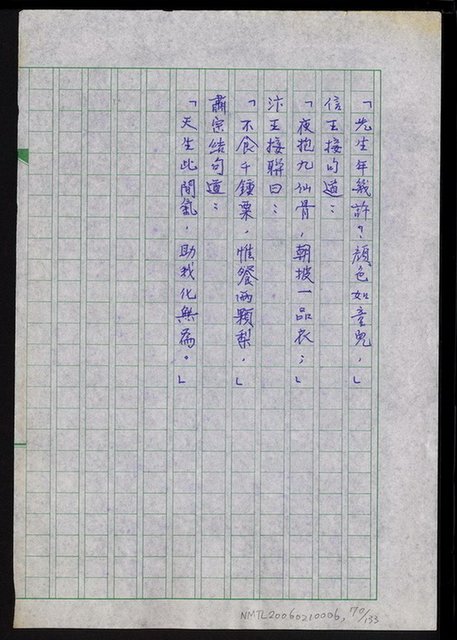 「先生年幾許？顏色如童兒，」
信王接句道：
「夜抱九仙骨，朝披一品衣；」
汴王接聯曰：
「不食千鍾粟，惟餐兩顆梨，」
肅宗結句道：
「天生此間氣，助我化無為。」
NMTL20060210006, 70/133